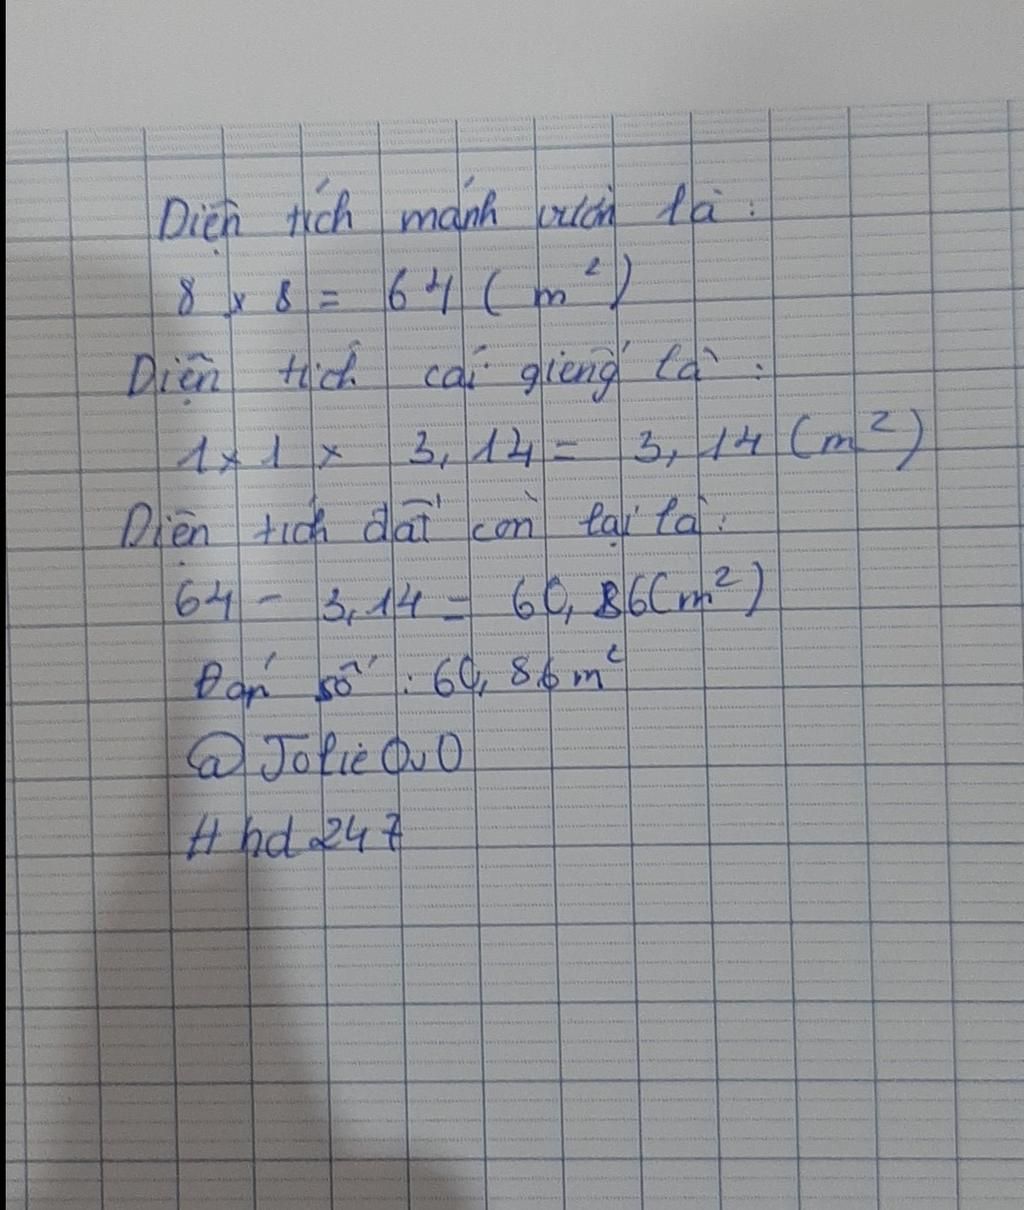 Diện tích mảnh vườn là :
8 x 8 = 64 ( m² )
Diện tích cái giếng là :
1 x 1 x 3,14 = 3,14 (m²)
Diện tích đất còn lại là :
64 - 3,14 = 60,86 (m²)
Đáp số : 60,86 m²
@ Jolie OvO
# hd 247